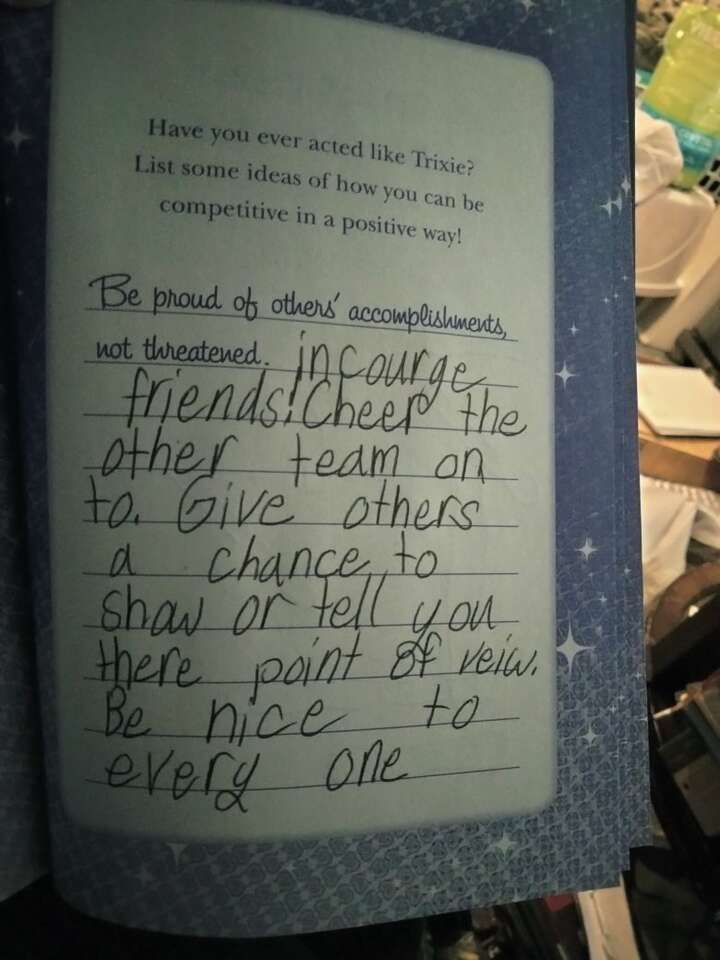 Have you ever acted like Trixie?
List some ideas of how you can be
competitive in a positive way!
Be proud of others' accomplishments,
not threatened. incourge
friends! Cheer the
other team on
to. Give others
a chance to
show or tell you
there point of veiw.
Be nice to
every one